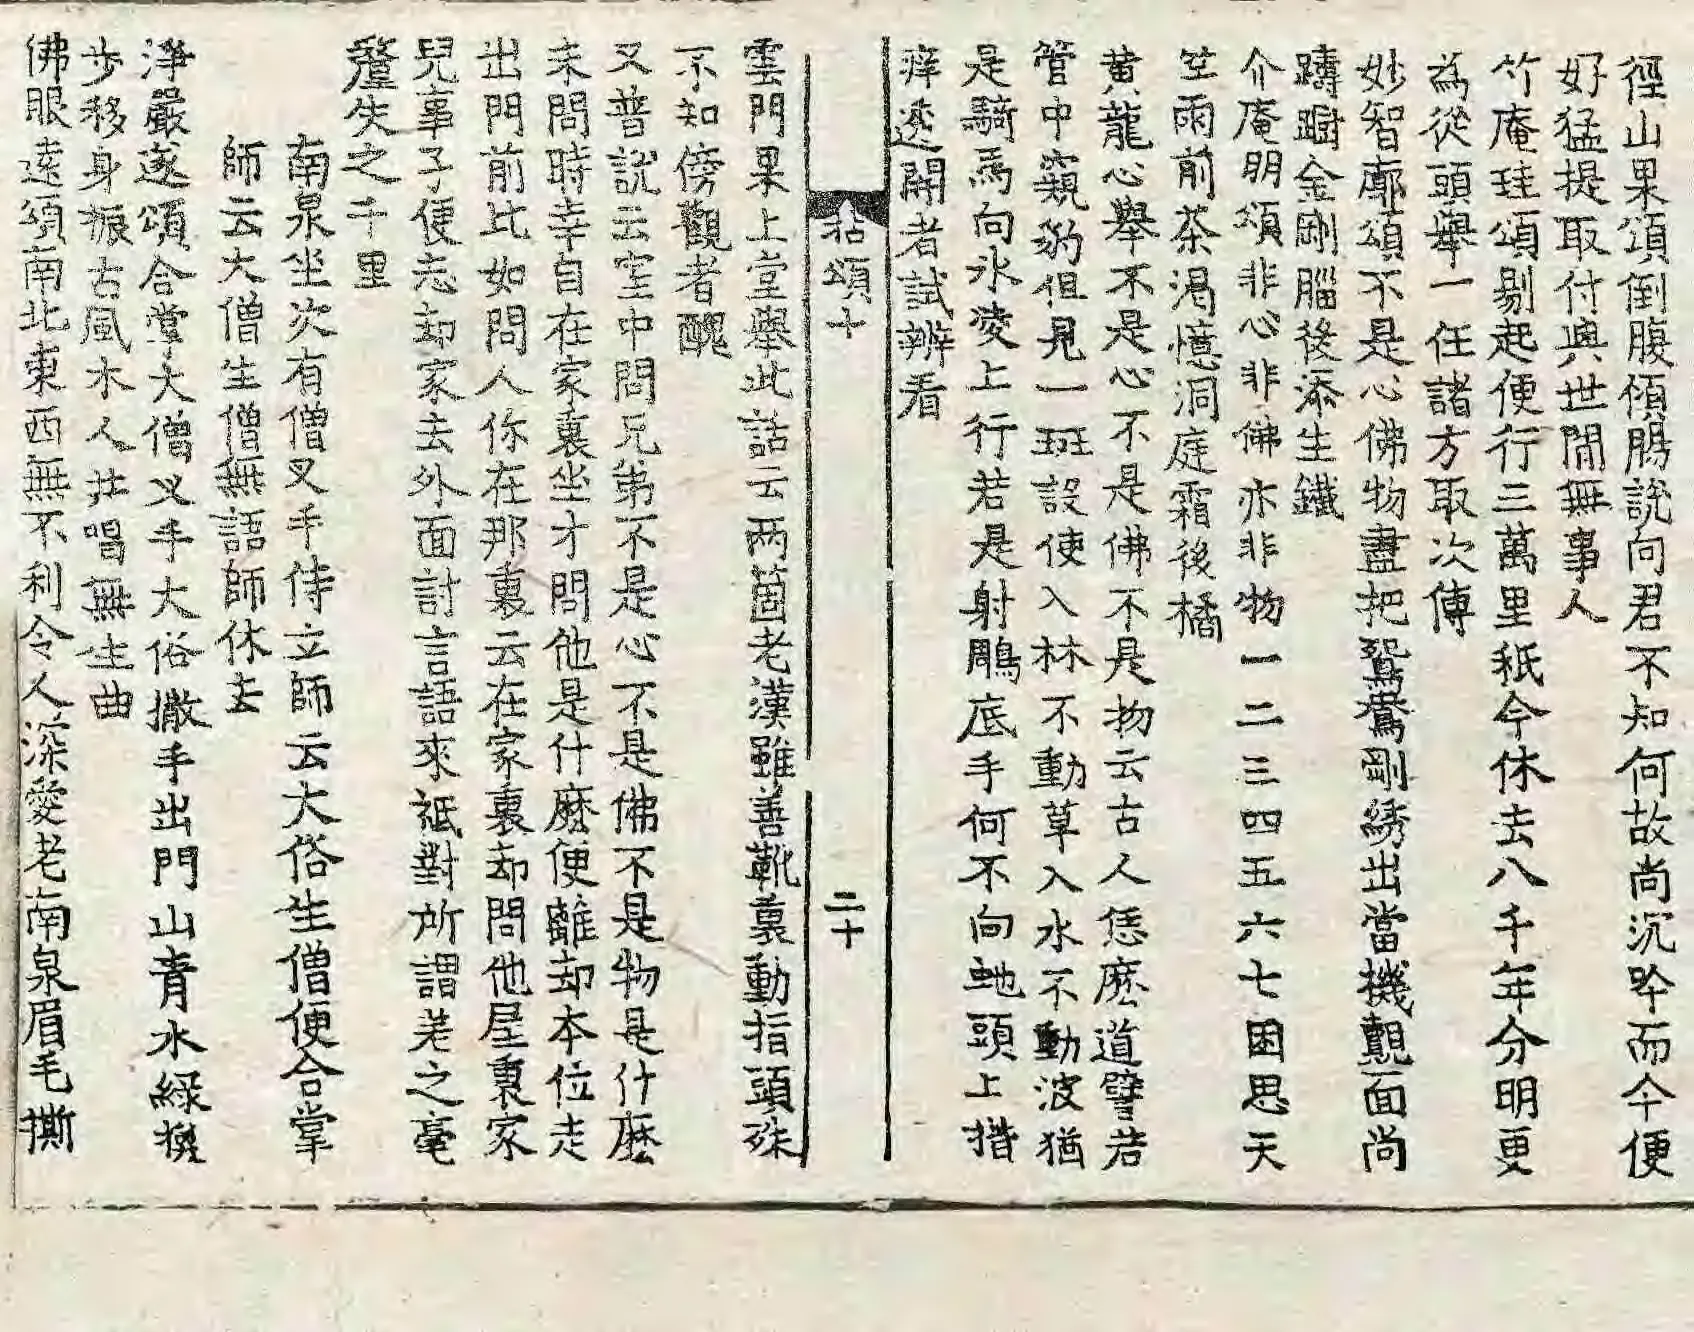 徑山果頌倒腹傾腸說向君不知何故尚沉吟而今便
好猛提取付與世間無事人
竹庵珪頌剔起便行三萬里秖今休去八千年分明更
為從頭舉一任諸方取次傳
妙智廓頌不是心佛物盡把鴛鴦剛綉出當機覿面尚
躊躇金剛腦後添生鐵
介庵明頌非心非佛亦非物一二三四五六七困思天
竺雨前茶渴憶洞庭霜後橘
黃龍心舉不是心不是佛不是物云古人恁麽道譬若
管中窺豹但見一斑設使入林不動草入水不動波猶
是騎馬向氷凌上行若是射鵰底手何不向虵頭上揩
痒透關者試辨看
拈頌十 二十
雲門果上堂舉此話云两箇老漢雖善靴裏動指頭殊
不知傍觀者醜
又普說云室中問兄弟不是心不是佛不是物是什麽
未問時幸自在家裏坐才問他是什麽便離却本位走
出門前比如問人你在那裏云在家裏却問他屋裏家
兒事子便忘却家去外面討言語來祗對所謂差之毫
釐失之千里
南泉坐次有僧叉手侍立師云大俗生僧便合掌
師云大僧生僧無語師休去
淨嚴遂頌合掌大僧叉手大俗撒手出門山青水綠擬
步移身振古風木人共唱無生曲
佛眼遠頌南北東西無不利令人深愛老南泉眉毛撕